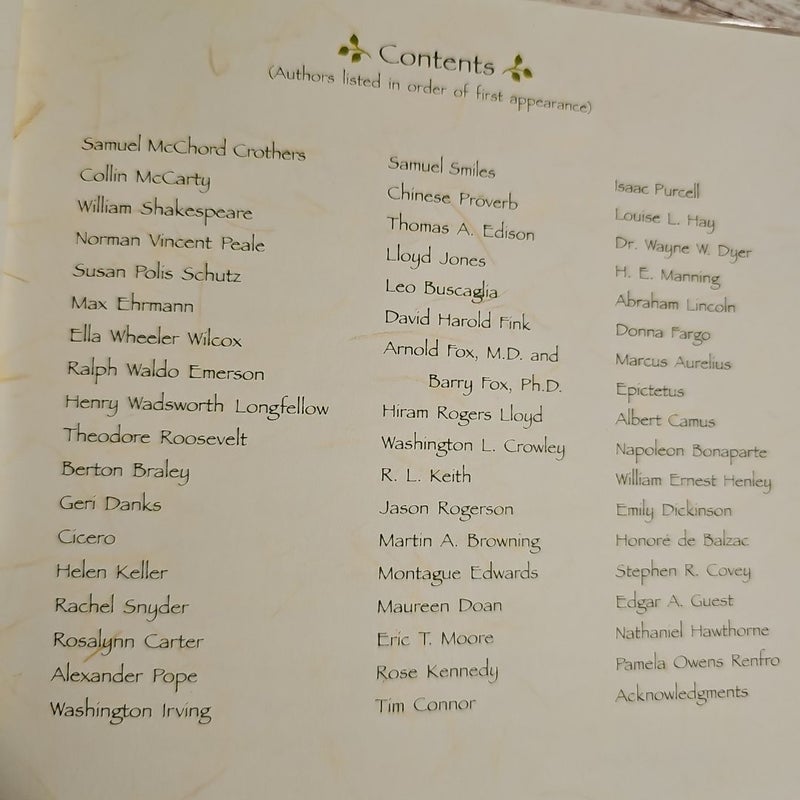 Contents
(Authors listed in order of first appearance)
Samuel McChord Crothers
Collin McCarty
William Shakespeare
Norman Vincent Peale
Susan Polis Schutz
Max Ehrmann
Ella Wheeler Wilcox
Ralph Waldo Emerson
Henry Wadsworth Longfellow
Theodore Roosevelt
Berton Braley
Geri Danks
Cicero
Helen Keller
Rachel Snyder
Rosalynn Carter
Alexander Pope
Washington Irving
Samuel Smiles
Chinese Proverb
Thomas A. Edison
Lloyd Jones
Leo Buscaglia
David Harold Fink
Arnold Fox, M.D. and
Barry Fox, Ph.D.
Hiram Rogers Lloyd
Washington L. Crowley
R. L. Keith
Jason Rogerson
Martin A. Browning
Montague Edwards
Maureen Doan
Eric T. Moore
Rose Kennedy
Tim Connor
Isaac Purcell
Louise L. Hay
Dr. Wayne W. Dyer
H. E. Manning
Abraham Lincoln
Donna Fargo
Marcus Aurelius
Epictetus
Albert Camus
Napoleon Bonaparte
William Ernest Henley
Emily Dickinson
Honoré de Balzac
Stephen R. Covey
Edgar A. Guest
Nathaniel Hawthorne
Pamela Owens Renfro
Acknowledgments